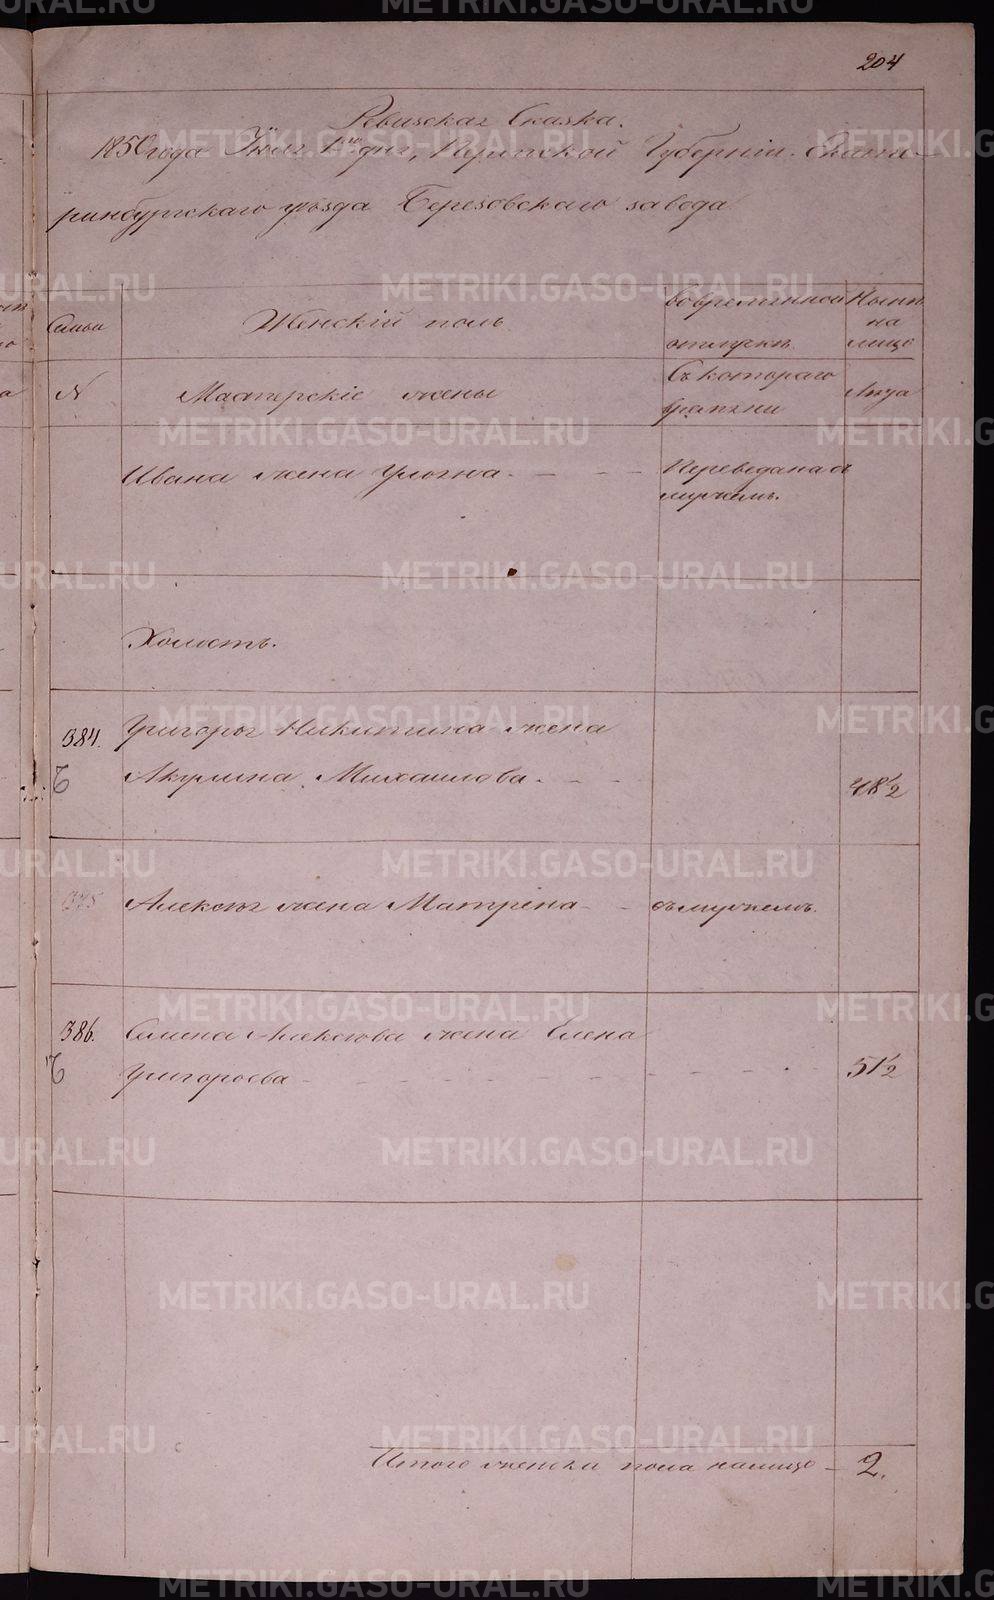 204
Ревизская Сказка.
1850 года Июля 1го дня, Пермской Губерніи. Екате-
ринбургскаго уезда Березовскаго завода
Семьи
Женскій полъ
Во временной
отлучке
Ныне
на
лицо
N
Мастерскіе жены
Съ котораго
времени
Лета
Ивана жена Улогна
Переведана съ
мужемъ.
Холостъ.
384.
Григорья Никитина жена
Акулина Михаилова
48 1/2
385
Алексея жена Матрена
съ мужемъ.
386.
Семена Алексеева жена Елена
Григорьева
51 1/2
Итого женска пола налицо
2.
METRIKI.GASO-URAL.RU